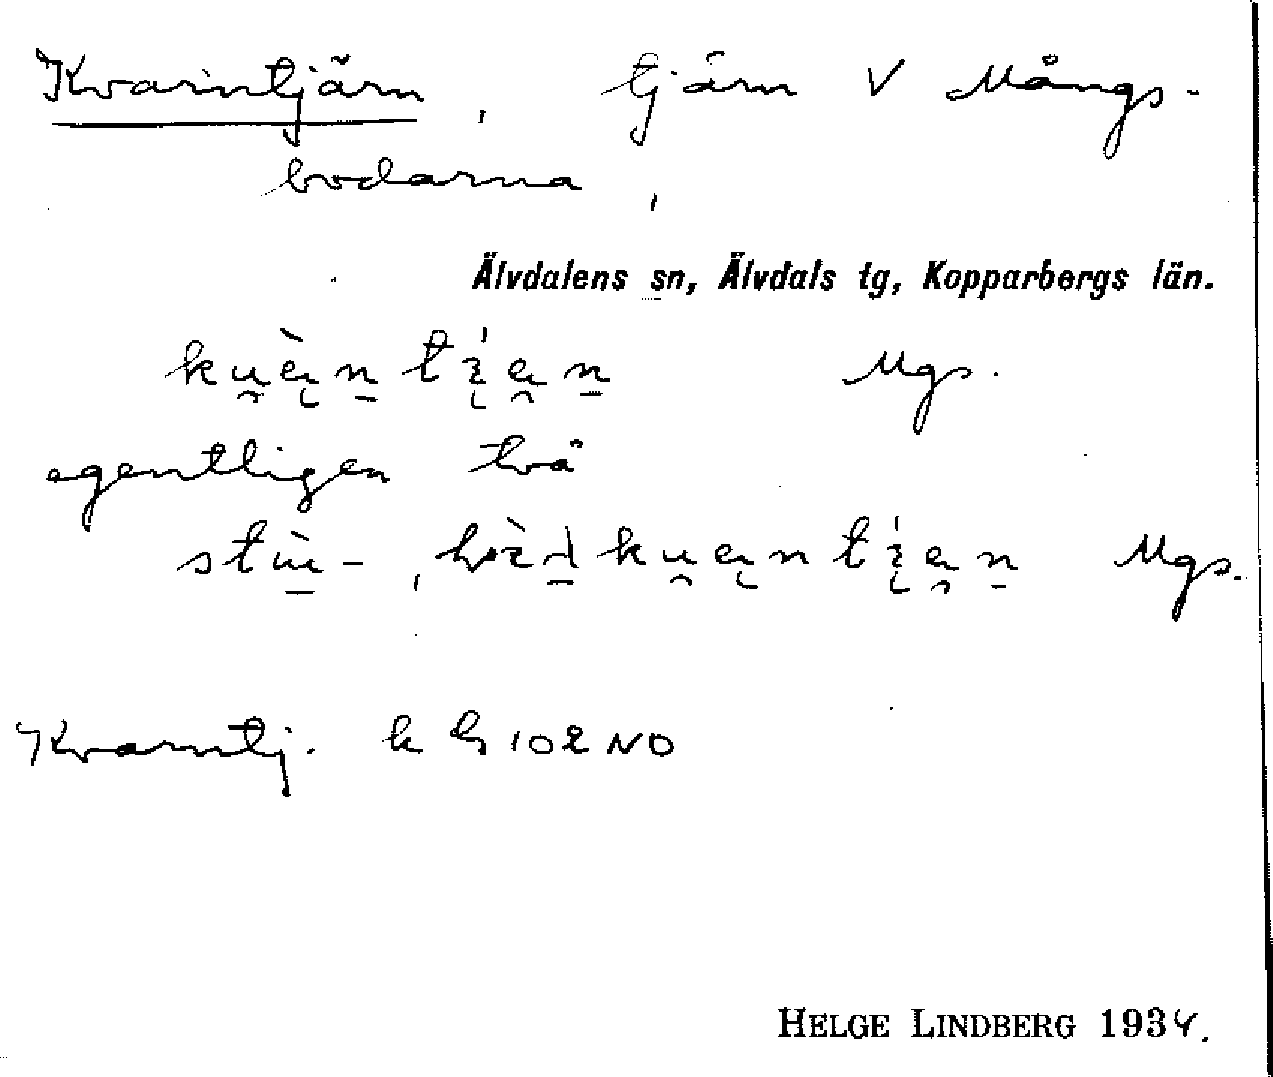 Kvarntjärn, tjärn V Mångs-
bodarna,
Älvdalens sn, Älvdals tg, Kopparbergs län.
Mgs.
egentligen två
Mgs.
Kvarntj. k G 102 NO
HELGE LINDBERG 1934.